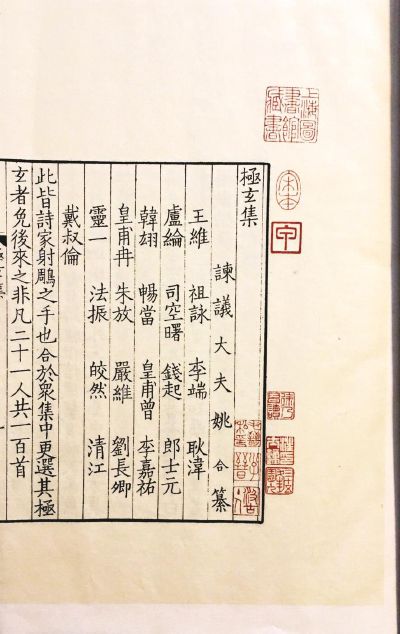 極玄集
諫議大夫姚合纂
王維 祖詠 李端 耿湋
盧綸 司空曙 錢起 郎士元
韓翃 暢當 皇甫曾 李嘉祐
皇甫冉 朱放 嚴維 劉長卿
靈一 法振 皎然 清江
戴叔倫
此皆詩家射雕之手也合於衆集中更選其極
玄者免後來之非凡二十一人共一百首
上海圖
書館
藏書
宋本